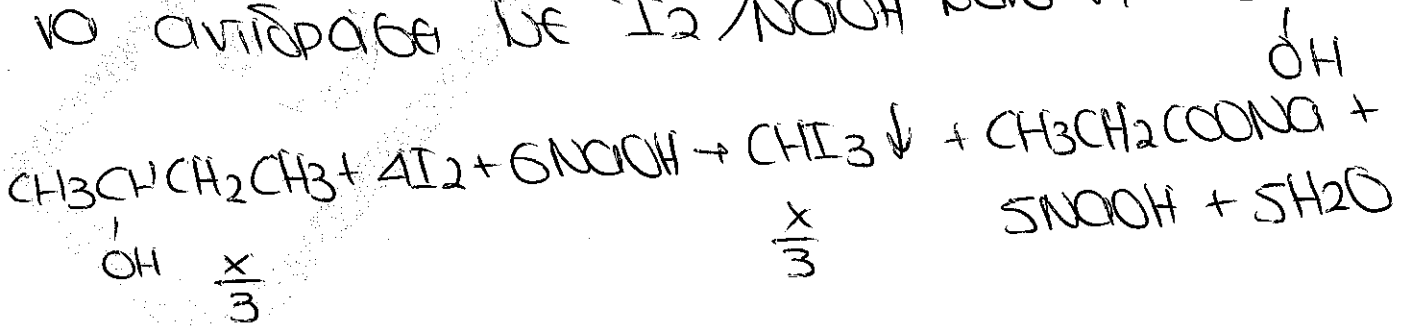 να αντιδράσει με I2/NaOH
OH
CH3CHCH2CH3 + 4I2 + 6NaOH → CHI3↓ + CH3CH2COONa +
OH x/3 x/3 5NaOH + 5H2O